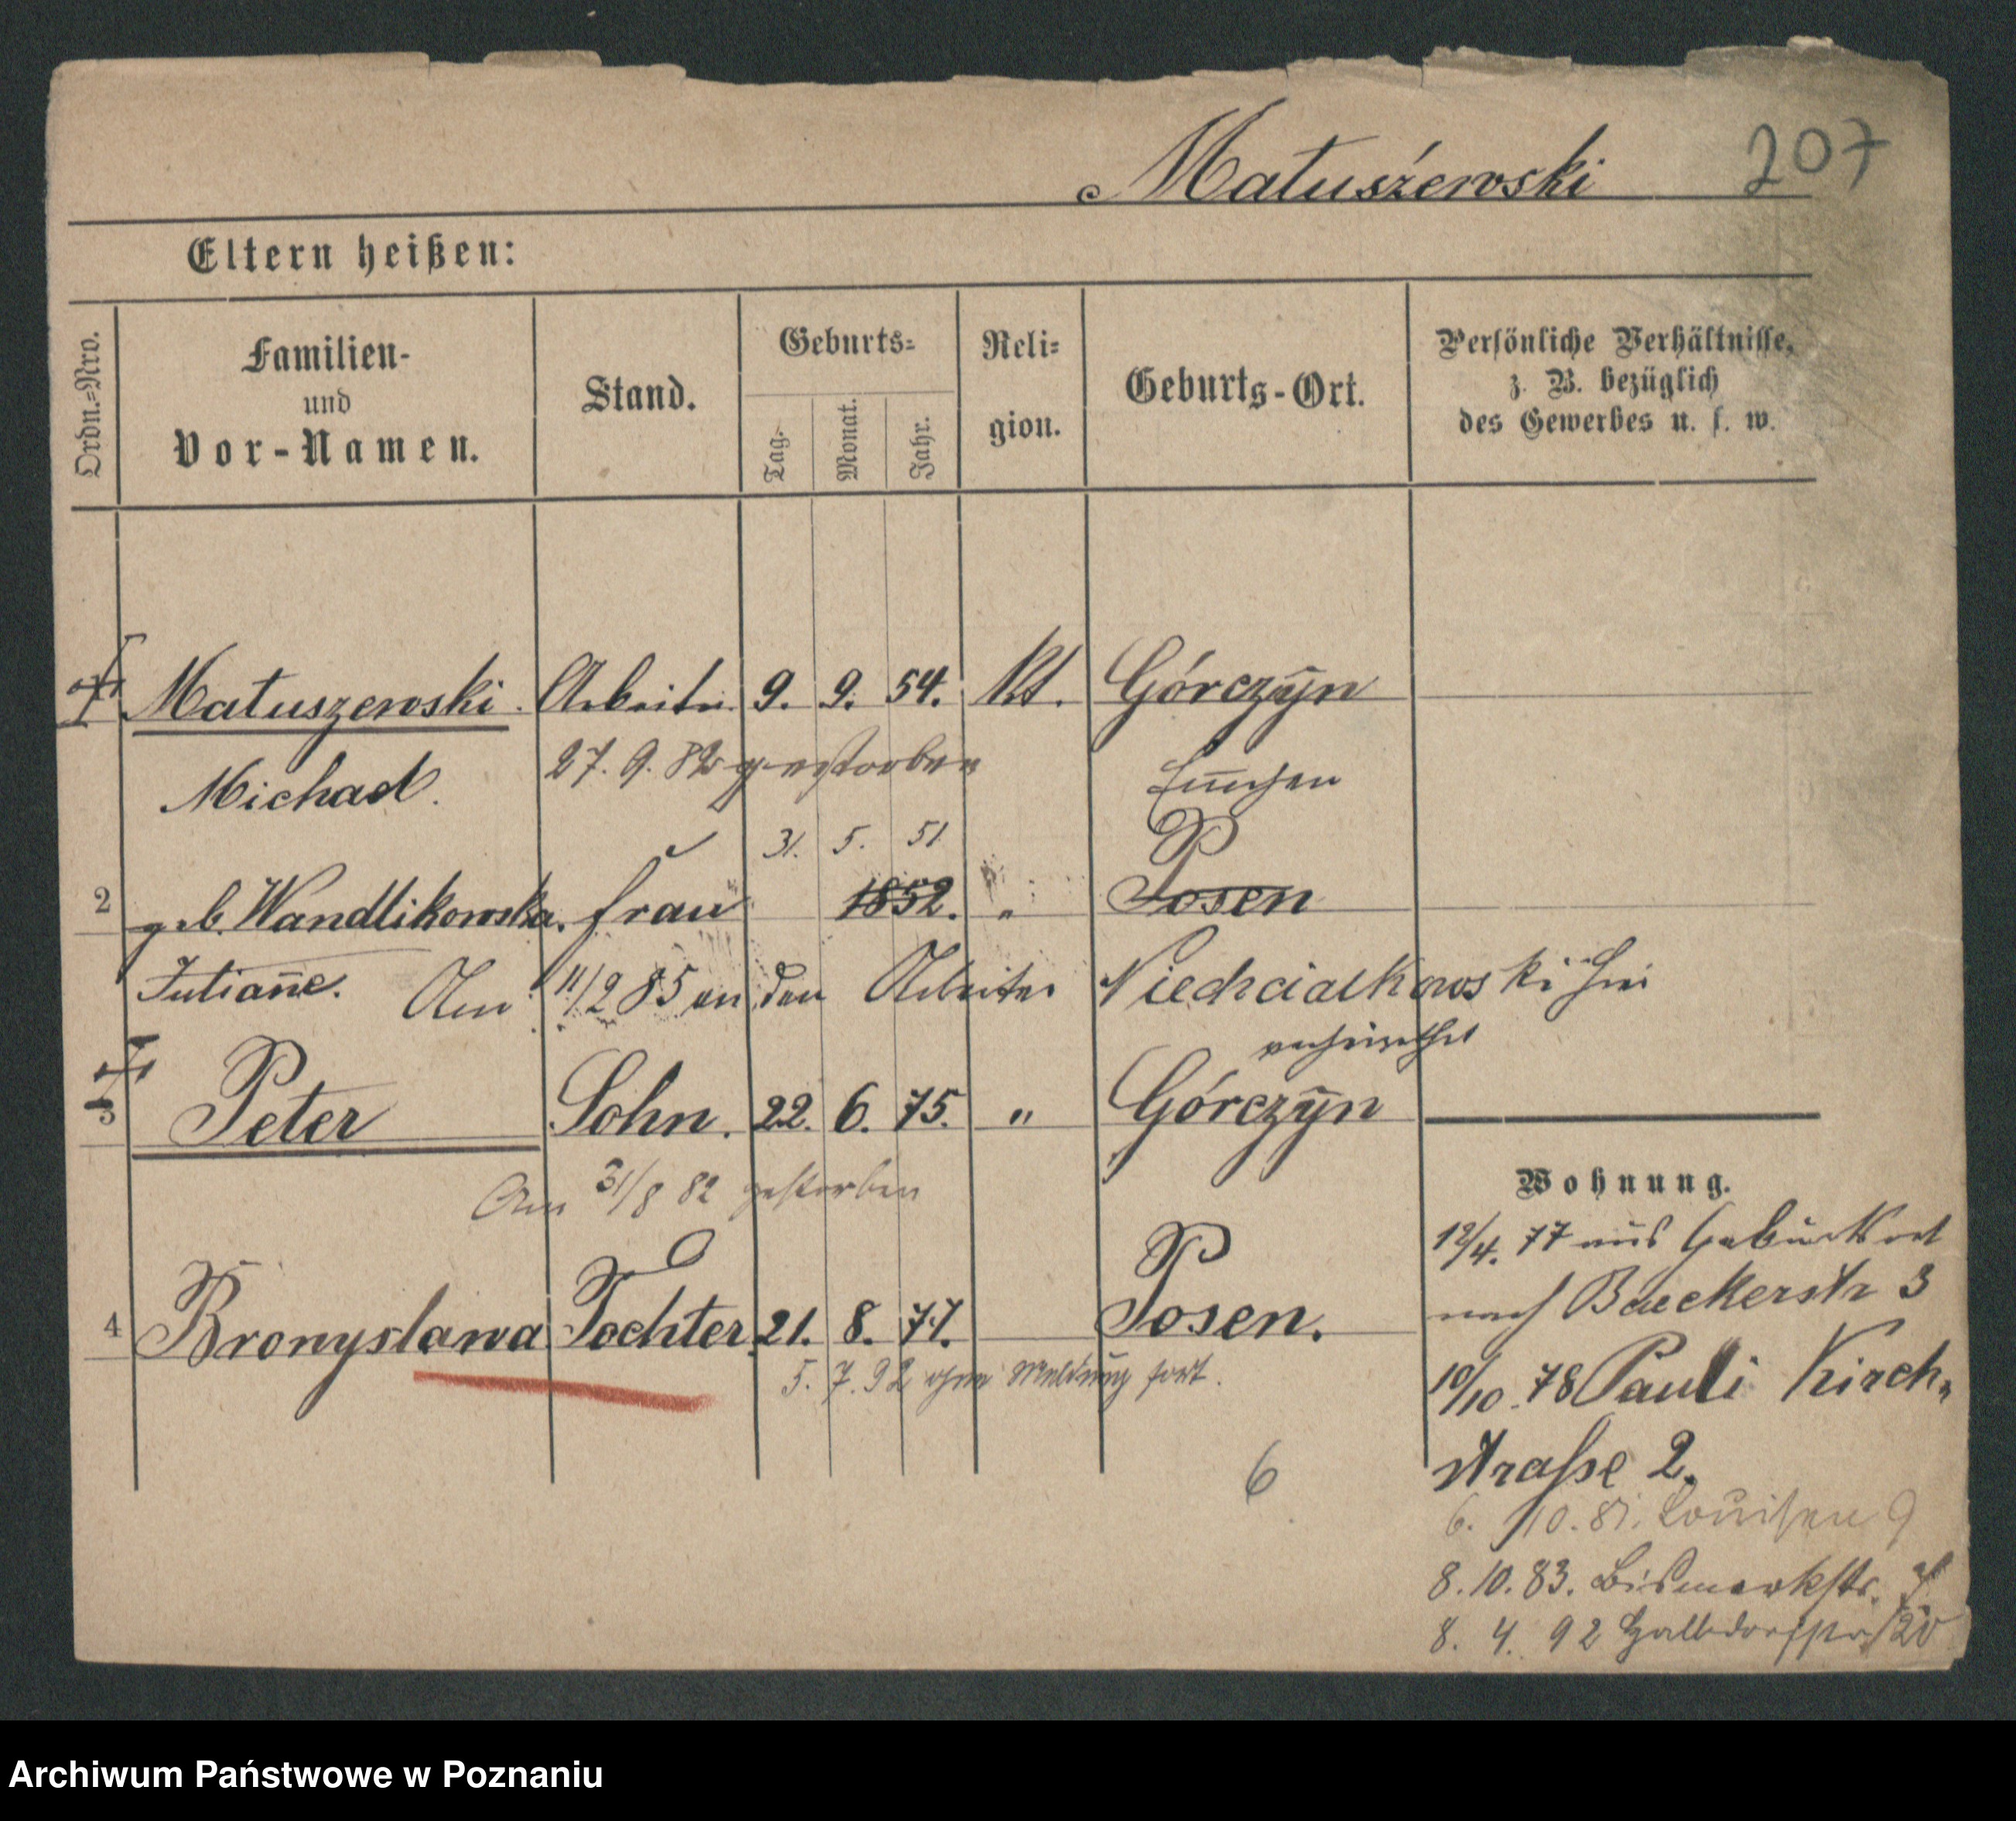 Matuszewski 207
Eltern heißen:
Ordn.=Nro.
Familien-
und
Vor-Namen.
Stand.
Geburts=
Tag.
Monat.
Jahr.
Reli=
gion.
Geburts-Ort.
Persönliche Verhältnisse,
z. B. bezüglich
des Gewerbes u. s. w.
1 Matuszewski. Arbeiter 9. 9. 54. Kt. Górczyn
Michael. 27. 9. 82 gestorben
31. 5. 51
2 geb. Wandlikowska. Frau 1852. " Posen
Julianne. Am 11/2 85 an den Arbeiter Niedzialkowski hier
verheirathet
3 Peter Sohn. 22. 6. 75. " Górczyn
Am 31/8 82 gestorben
4 Bronyslawa Tochter. 21. 8. 77. Posen.
5. 7. 92 ohne Meldung fort.
6
Wohnung.
12/4. 77 aus Geburtsort
nach Baeckerstr 3
10/10. 78 Pauli Kirch=
straße 2.
6. 10. 81. Louisen 9
8. 10. 83. Bismarkstr. 7
8. 4. 92 Halbdorfstr 20
Archiwum Państwowe w Poznaniu